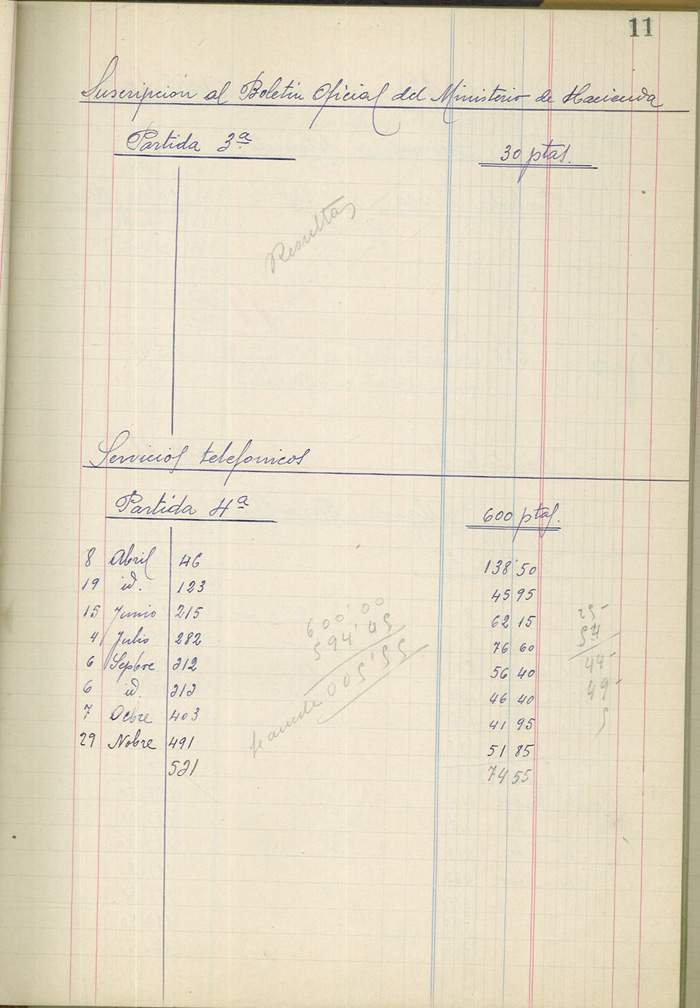 11
Suscripción al Boletin Oficial del Ministerio de Hacienda
Partida 3ª 30 ptas.
Resultas
Servicios telefonicos
Partida 4ª 600 ptas.
8 Abril 46 138'50
19 id. 123 45 95
15 Junio 215 62 15
4 Julio 282 76 60
6 Sepbre 312 56 40
6 id. 313 46 40
7 Ocbre 403 41 95
29 Nobre 491 51 85
521 74 55
600'00
594'45
005'55